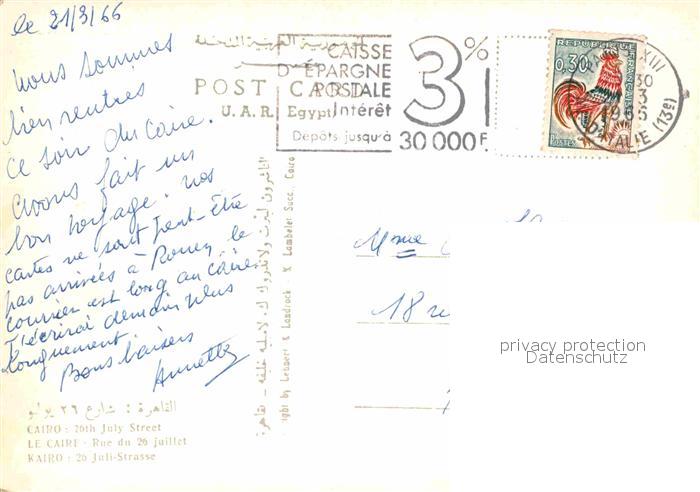 le 21/3/66
Nous sommes
bien rentrés
ce soir du Caire.
Avons fait un
bon voyage. nos
cartes ne sont peut-être
pas arrivées à Rouen, le
courrier est long au Caire.
T'écrirai demain plus
longuement.
Bons baisers
Annette
الجمهورية العربية المتحدة
مصر
POST CARD
U. A. R. Egypt
CAISSE
D'ÉPARGNE
POSTALE
Intérêt
3%
Dépôts jusqu'à
30 000 F
REPUBLIQUE FRANÇAISE
0,30
POSTES
PARIS XIII
ITALIE (13e)
Mme
18
privacy protection
Datenschutz
Copyright by Lehnert & Landrock - K Lambelet Succ. Cairo
القاهرة : شارع ٢٦ يوليو
CAIRO : 26th July Street
LE CAIRE - Rue du 26 juillet
KAIRO : 26 Juli-Strasse